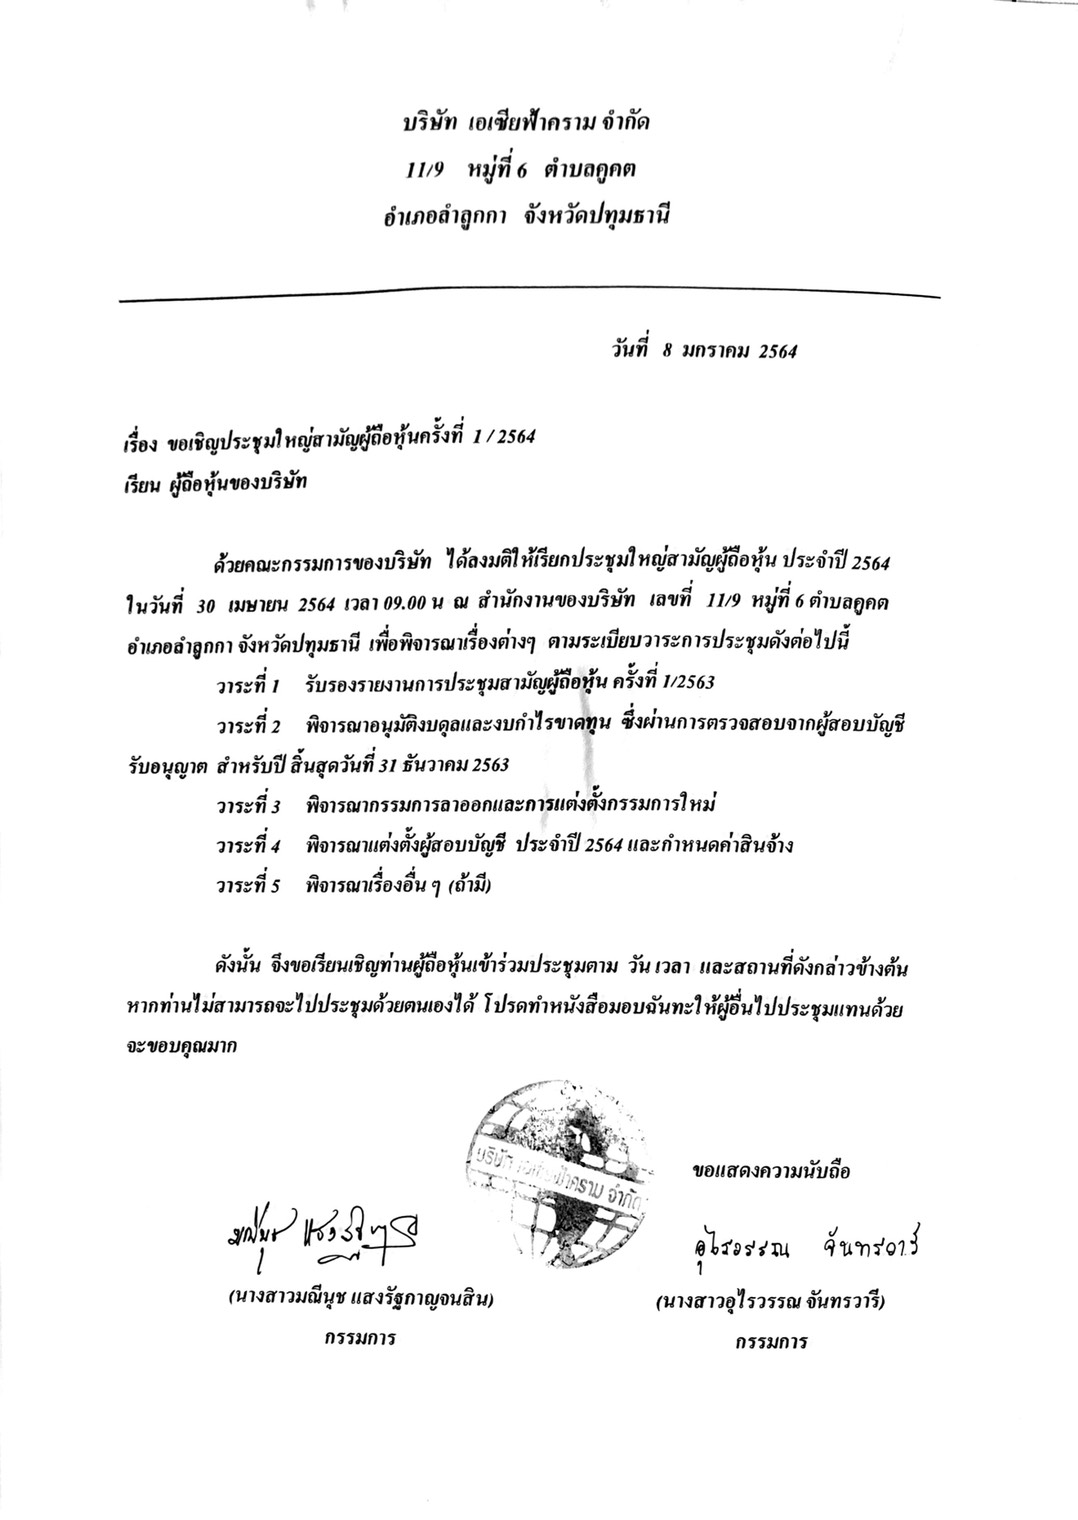 บริษัท เอเซียฟ้าคราม จำกัด
11/9 หมู่ที่ 6 ตำบลคูคต
อำเภอลำลูกกา จังหวัดปทุมธานี
วันที่ 8 มกราคม 2564
เรื่อง ขอเชิญประชุมใหญ่สามัญผู้ถือหุ้นครั้งที่ 1 / 2564
เรียน ผู้ถือหุ้นของบริษัท
ด้วยคณะกรรมการของบริษัท ได้ลงมติให้เรียกประชุมใหญ่สามัญผู้ถือหุ้น ประจำปี 2564
ในวันที่ 30 เมษายน 2564 เวลา 09.00 น ณ สำนักงานของบริษัท เลขที่ 11/9 หมู่ที่ 6 ตำบลคูคต
อำเภอลำลูกกา จังหวัดปทุมธานี เพื่อพิจารณาเรื่องต่างๆ ตามระเบียบวาระการประชุมดังต่อไปนี้
วาระที่ 1 รับรองรายงานการประชุมสามัญผู้ถือหุ้น ครั้งที่ 1/2563
วาระที่ 2 พิจารณาอนุมัติงบดุลและงบกำไรขาดทุน ซึ่งผ่านการตรวจสอบจากผู้สอบบัญชี
รับอนุญาต สำหรับปี สิ้นสุดวันที่ 31 ธันวาคม 2563
วาระที่ 3 พิจารณากรรมการลาออกและการแต่งตั้งกรรมการใหม่
วาระที่ 4 พิจารณาแต่งตั้งผู้สอบบัญชี ประจำปี 2564 และกำหนดค่าสินจ้าง
วาระที่ 5 พิจารณาเรื่องอื่น ๆ (ถ้ามี)
ดังนั้น จึงขอเรียนเชิญท่านผู้ถือหุ้นเข้าร่วมประชุมตาม วัน เวลา และสถานที่ดังกล่าวข้างต้น
หากท่านไม่สามารถจะไปประชุมด้วยตนเองได้ โปรดทำหนังสือมอบฉันทะให้ผู้อื่นไปประชุมแทนด้วย
จะขอบคุณมาก
บริษัท เอเซียฟ้าคราม จำกัด
ขอแสดงความนับถือ
อุไรวรรณ จันทรวารี
(นางสาวมณีนุช แสงรัฐกาญจนสิน)
(นางสาวอุไรวรรณ จันทรวารี)
กรรมการ
กรรมการ